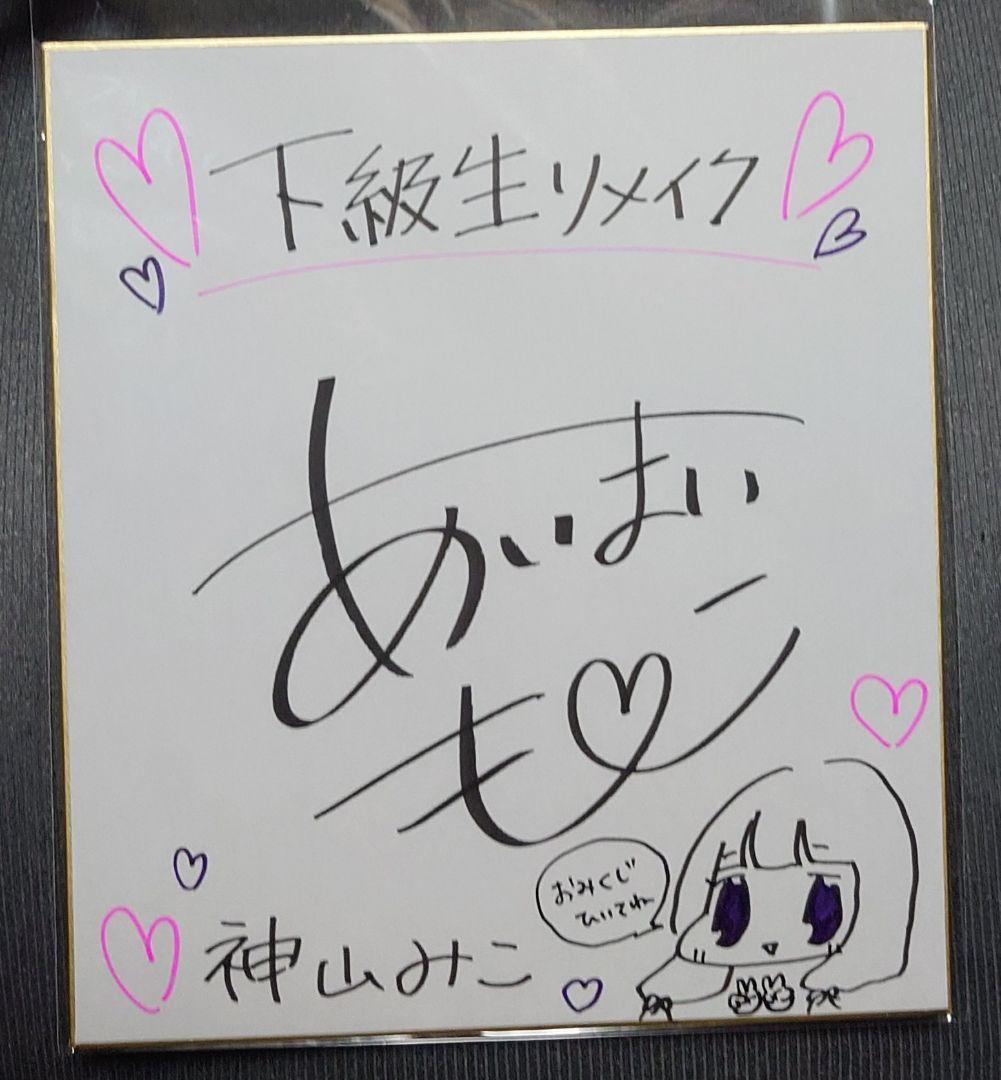 下級生リメイク
あかいまい
もん
おみくじ
ひいてねー
神山みこ